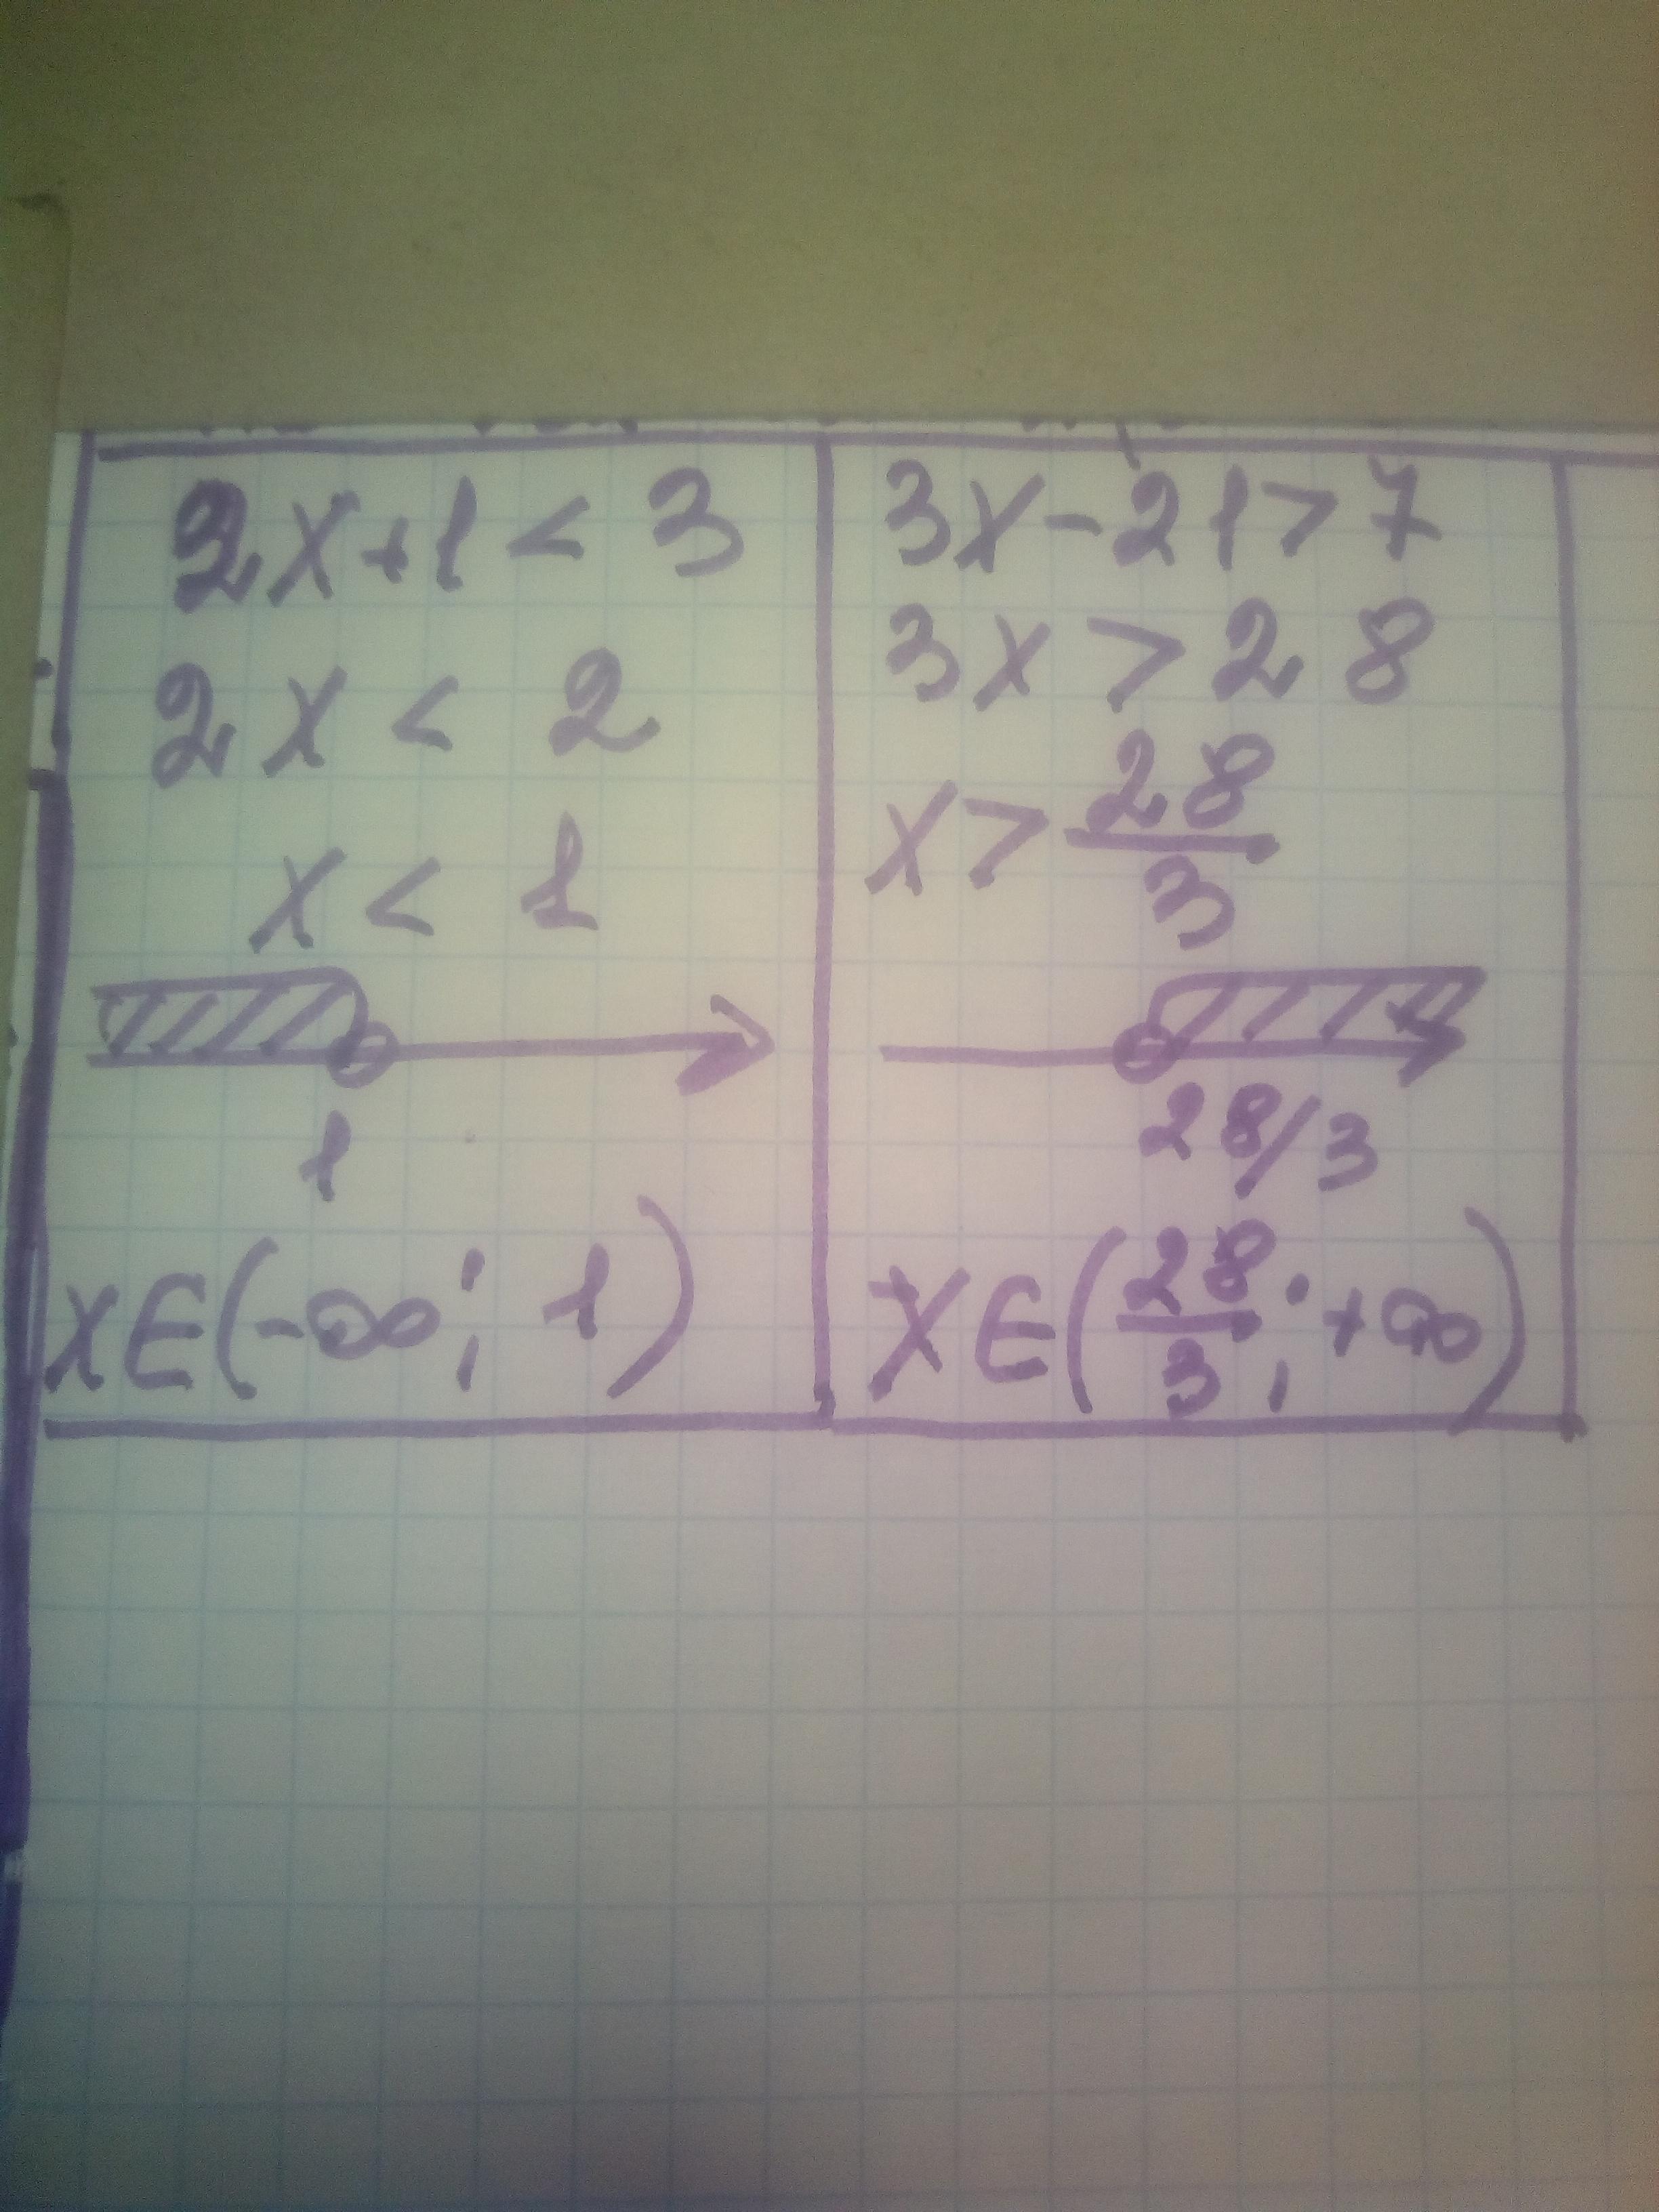 2x+1<3
2x < 2
x < 1
1
x∈(-∞; 1)
3x-21>7
3x>28
x>28/3
28/3
x∈(28/3; +∞)